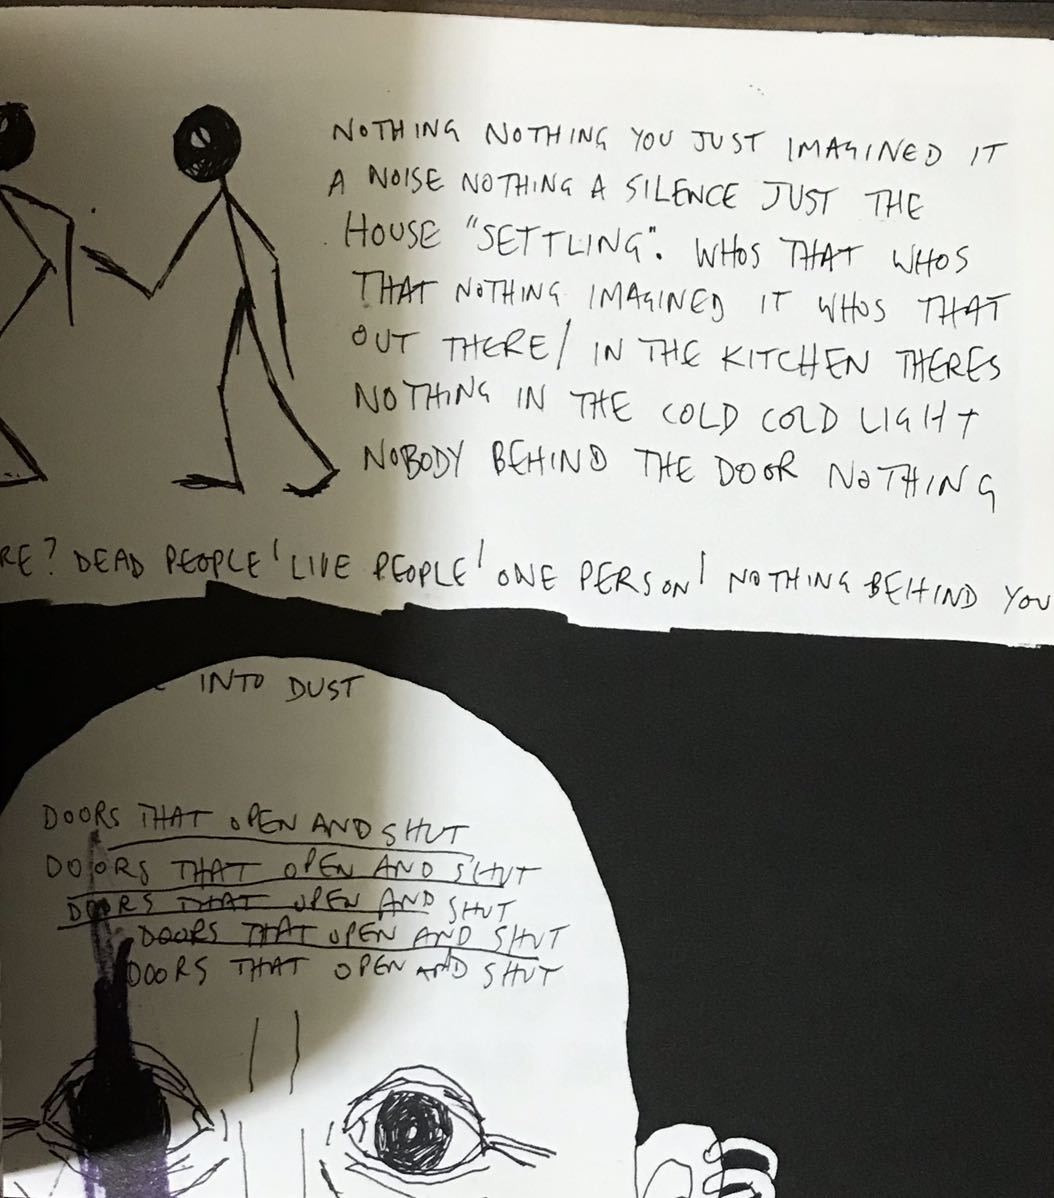 NOTHING NOTHING YOU JUST IMAGINED IT
A NOISE NOTHING A SILENCE JUST THE
HOUSE "SETTLING". WHOS THAT WHOS
THAT NOTHING IMAGINED IT WHOS THAT
OUT THERE/ IN THE KITCHEN THERES
NOTHING IN THE COLD COLD LIGHT
NOBODY BEHIND THE DOOR NOTHING
RE? DEAD PEOPLE! LIVE PEOPLE! ONE PERSON! NOTHING BEHIND YOU
INTO DUST
DOORS THAT OPEN AND SHUT
DOORS THAT OPEN AND SHUT
DOORS THAT OPEN AND SHUT
DOORS THAT OPEN AND SHUT
DOORS THAT OPEN AND SHUT